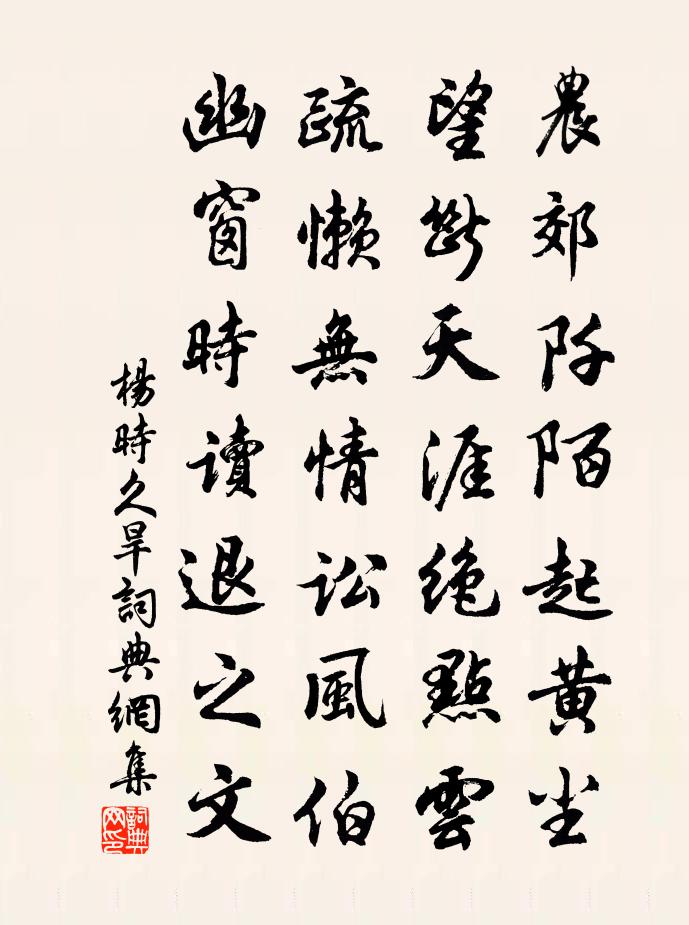 農郊阡陌起黃尘
望斷天涯絶點雲
疏懶無情訟風伯
幽窗時讀退之文
楊時久旱詞典網集
詞典网印